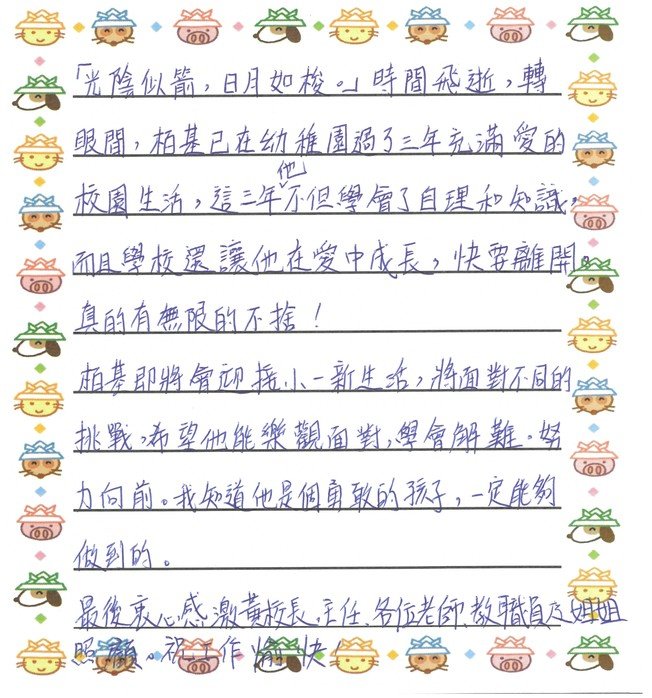 「光陰似箭，日月如梭。」時間飛逝，轉
眼間，栢基已在幼稚園過了三年充滿愛的
校園生活，這三年他不但學會了自理和知識，
而且學校還讓他在愛中成長，快要離開。
真的有無限的不捨！
栢基即將會迎接小一新生活，將面對不同的
挑戰，希望他能樂觀面對，學會解難。努
力向前。我知道他是個勇敢的孩子，一定能夠
做到的。
最後衷心感激黃校長、主任、各位老師、教職員及姐姐
照顧。祝工作愉快！